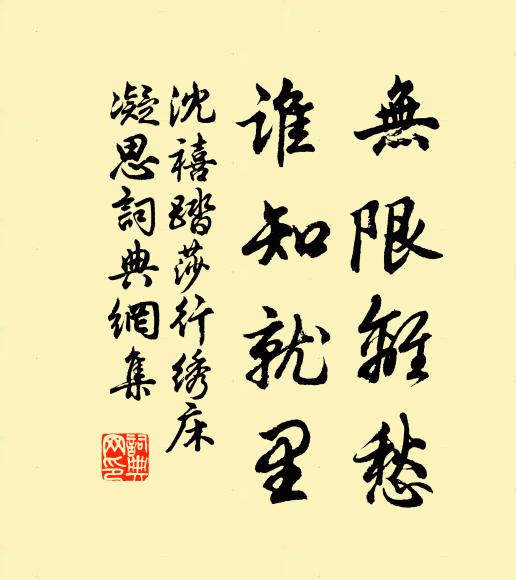 無限離愁
誰知就里
沈禧踏莎行绣床
凝思詞典網集
詞典
网印